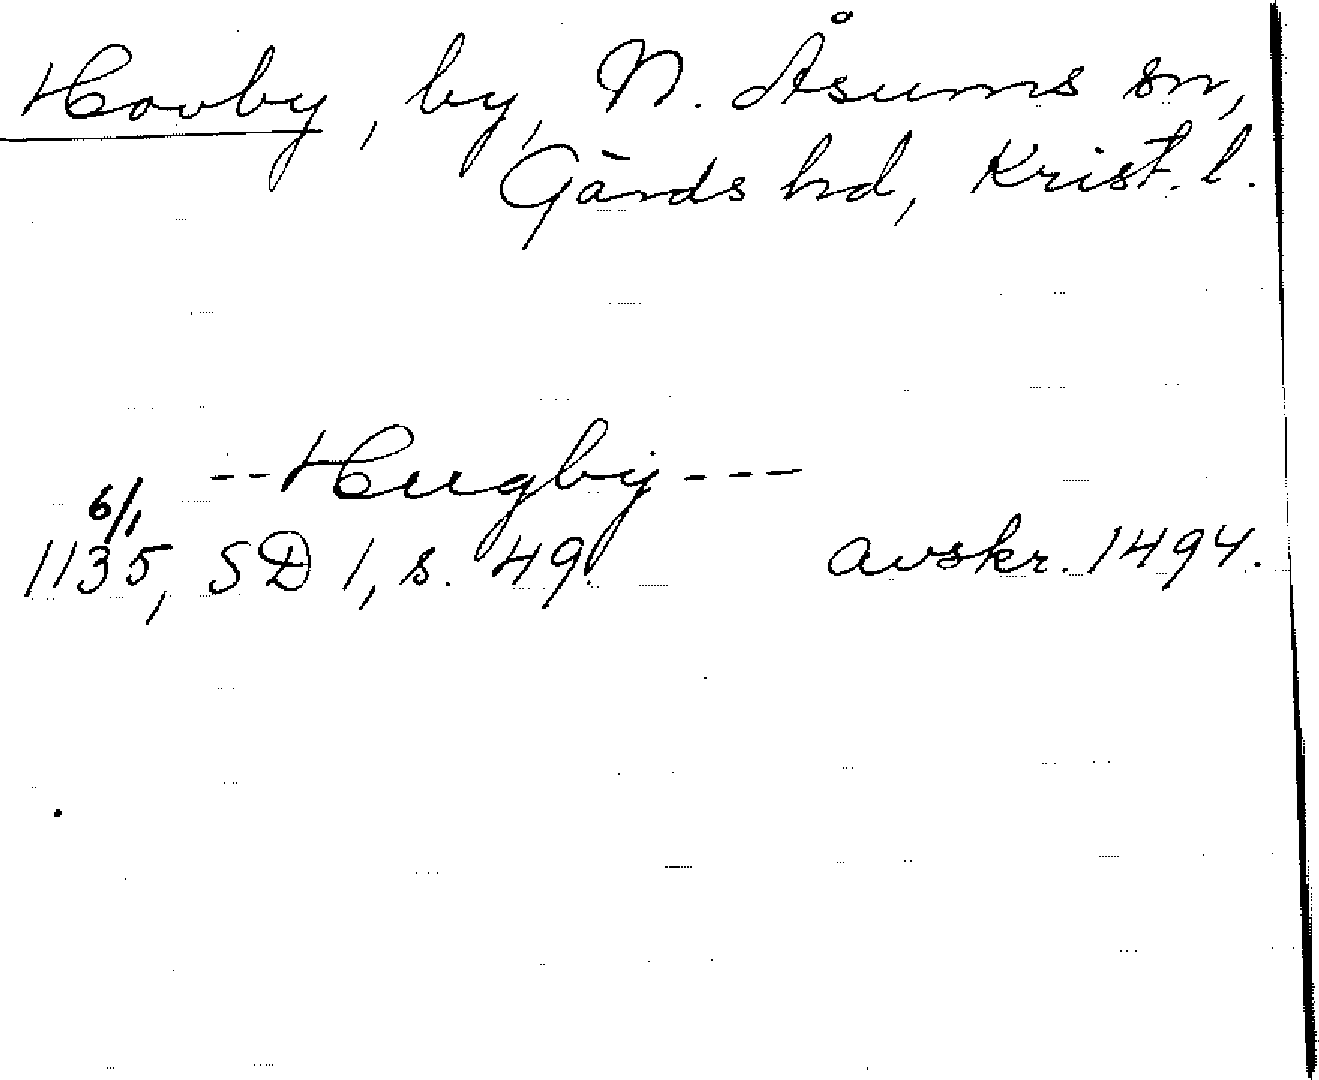 Hovby, by, N. Åsums sn,
Gärds hd, Krist. l.
--Hugby---
6/1
1135, SD 1, s. 49. avskr. 1494.